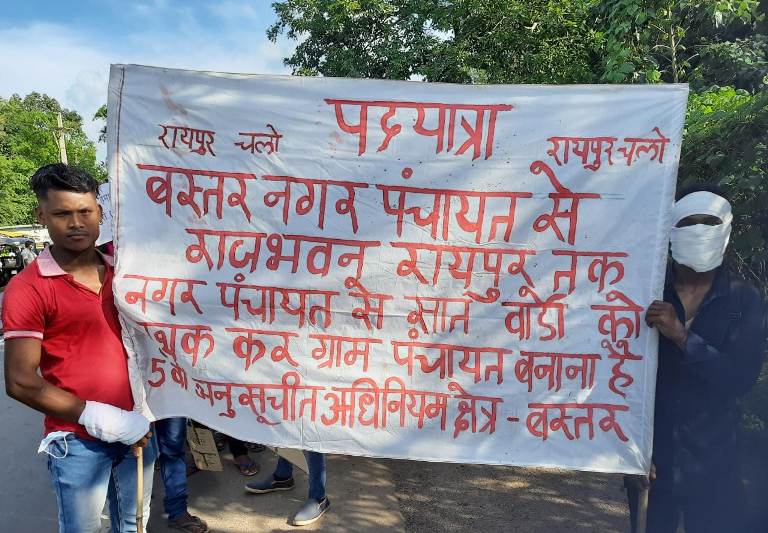 पदयात्रा
रायपुर चलो रायपुर चलो
बस्तर नगर पंचायत से
राजभवन रायपुर तक
नगर पंचायत से सात वार्डो को
पृथक कर ग्राम पंचायत बनाना है
5 वी अनुसूचीत अधिनियम क्षेत्र - बस्तर